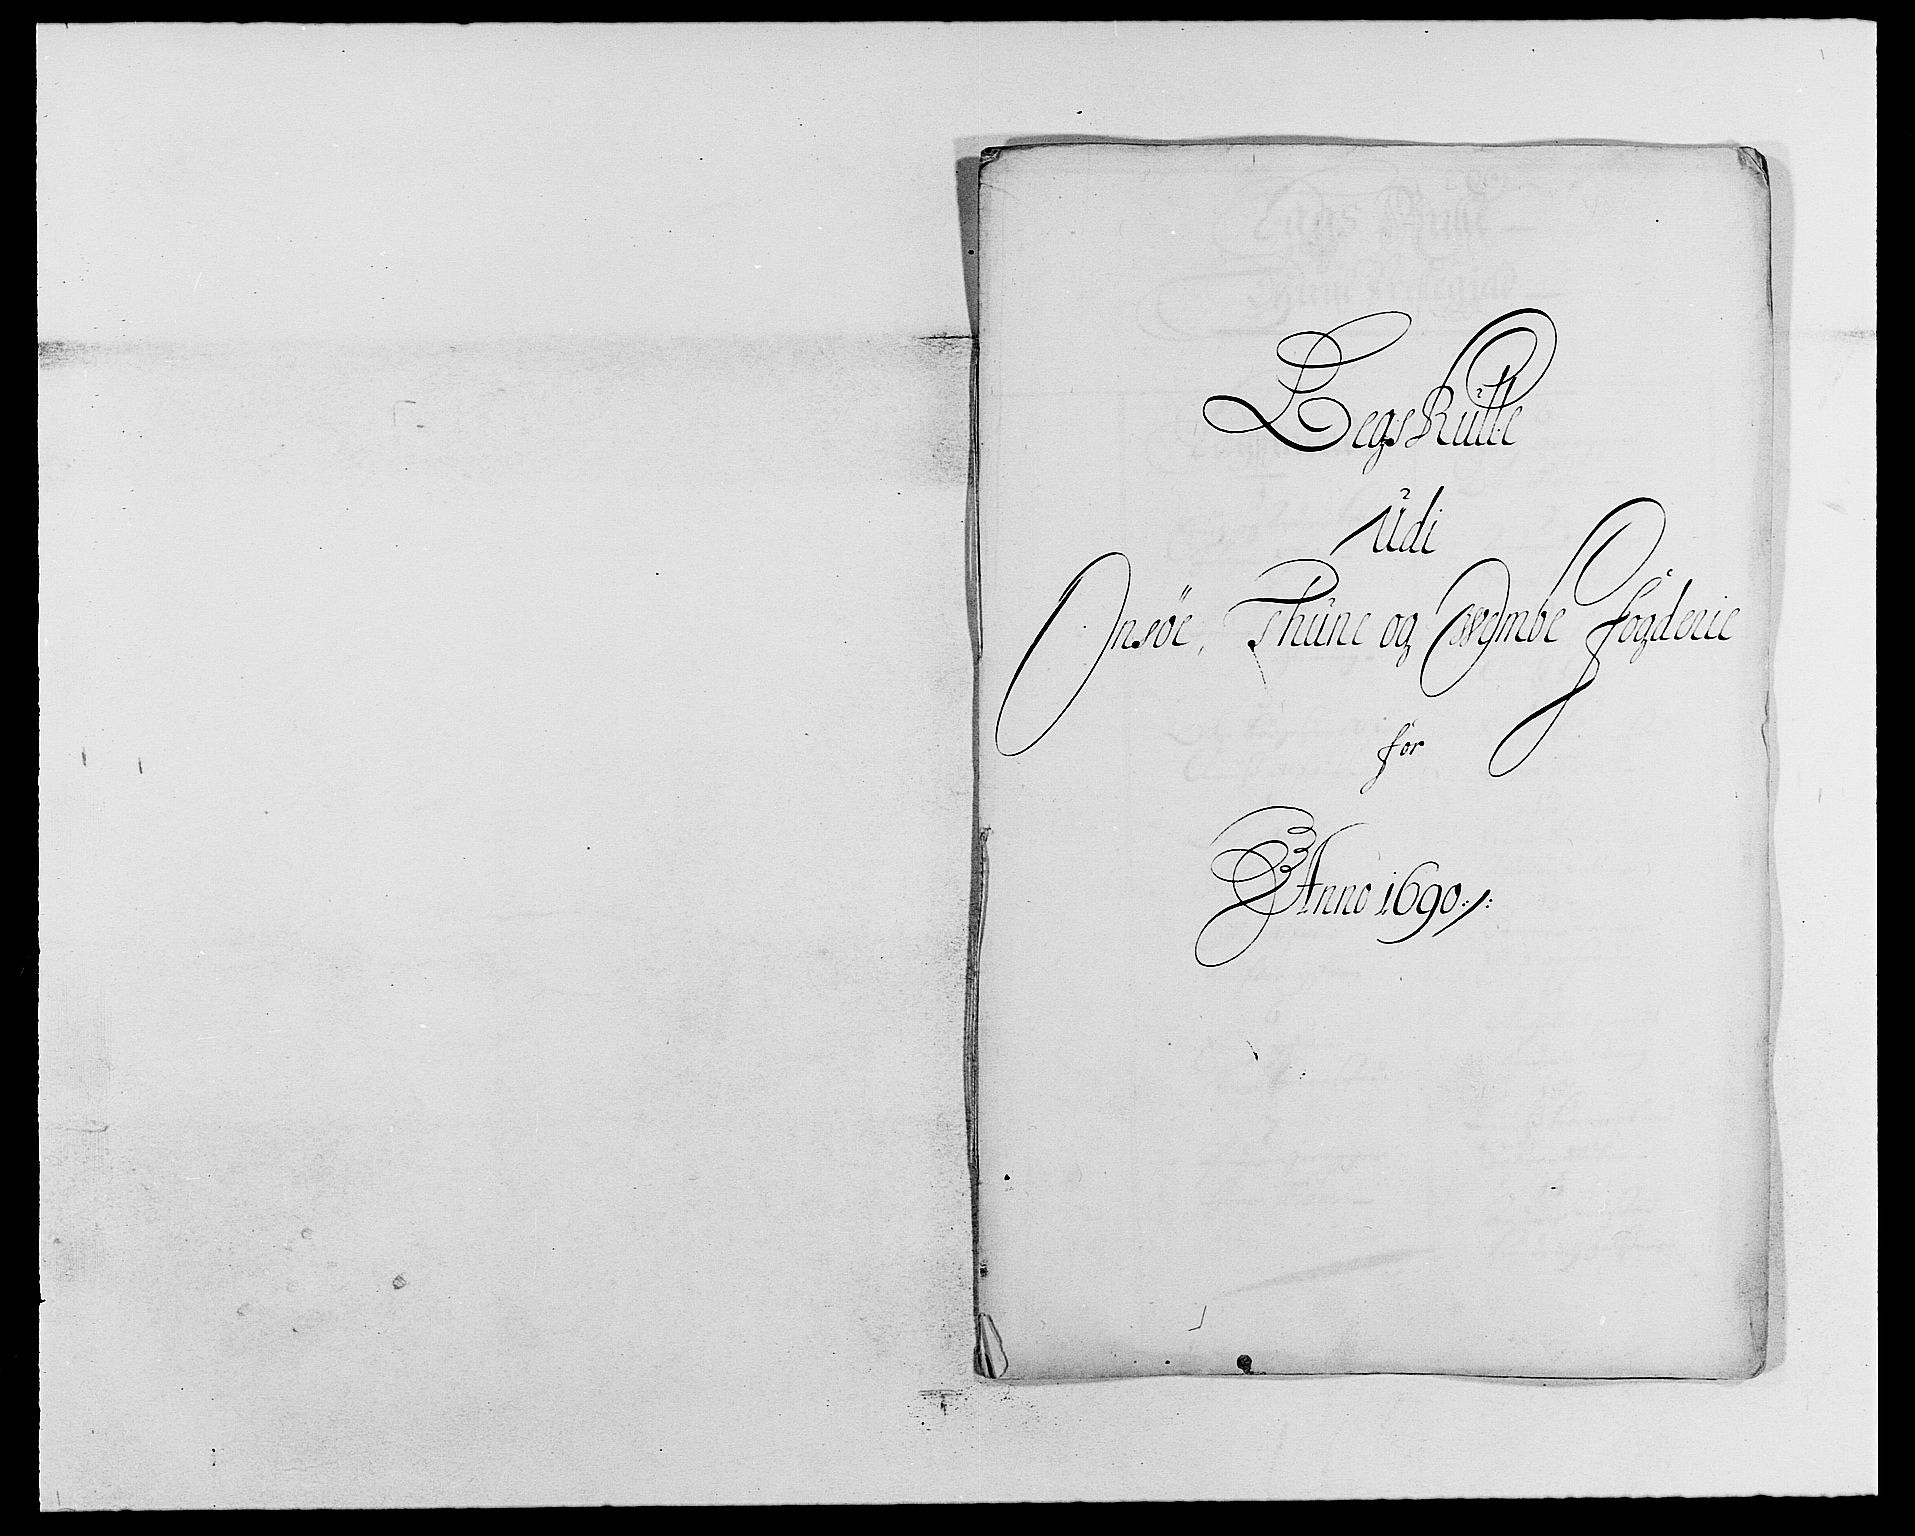 Legs Rulle
Udi
Onsøe, Thune og Weÿmbe fogderie
for
Anno 1690 ./: